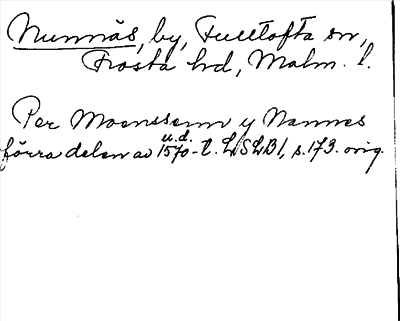 Nunnäs, by, Fulltofta sn,
Frosta hd, Malm. l.
Per Moenssenn y Nannes
u.d.
förra delen av 1570-t. LSLB1, s. 173. orig.